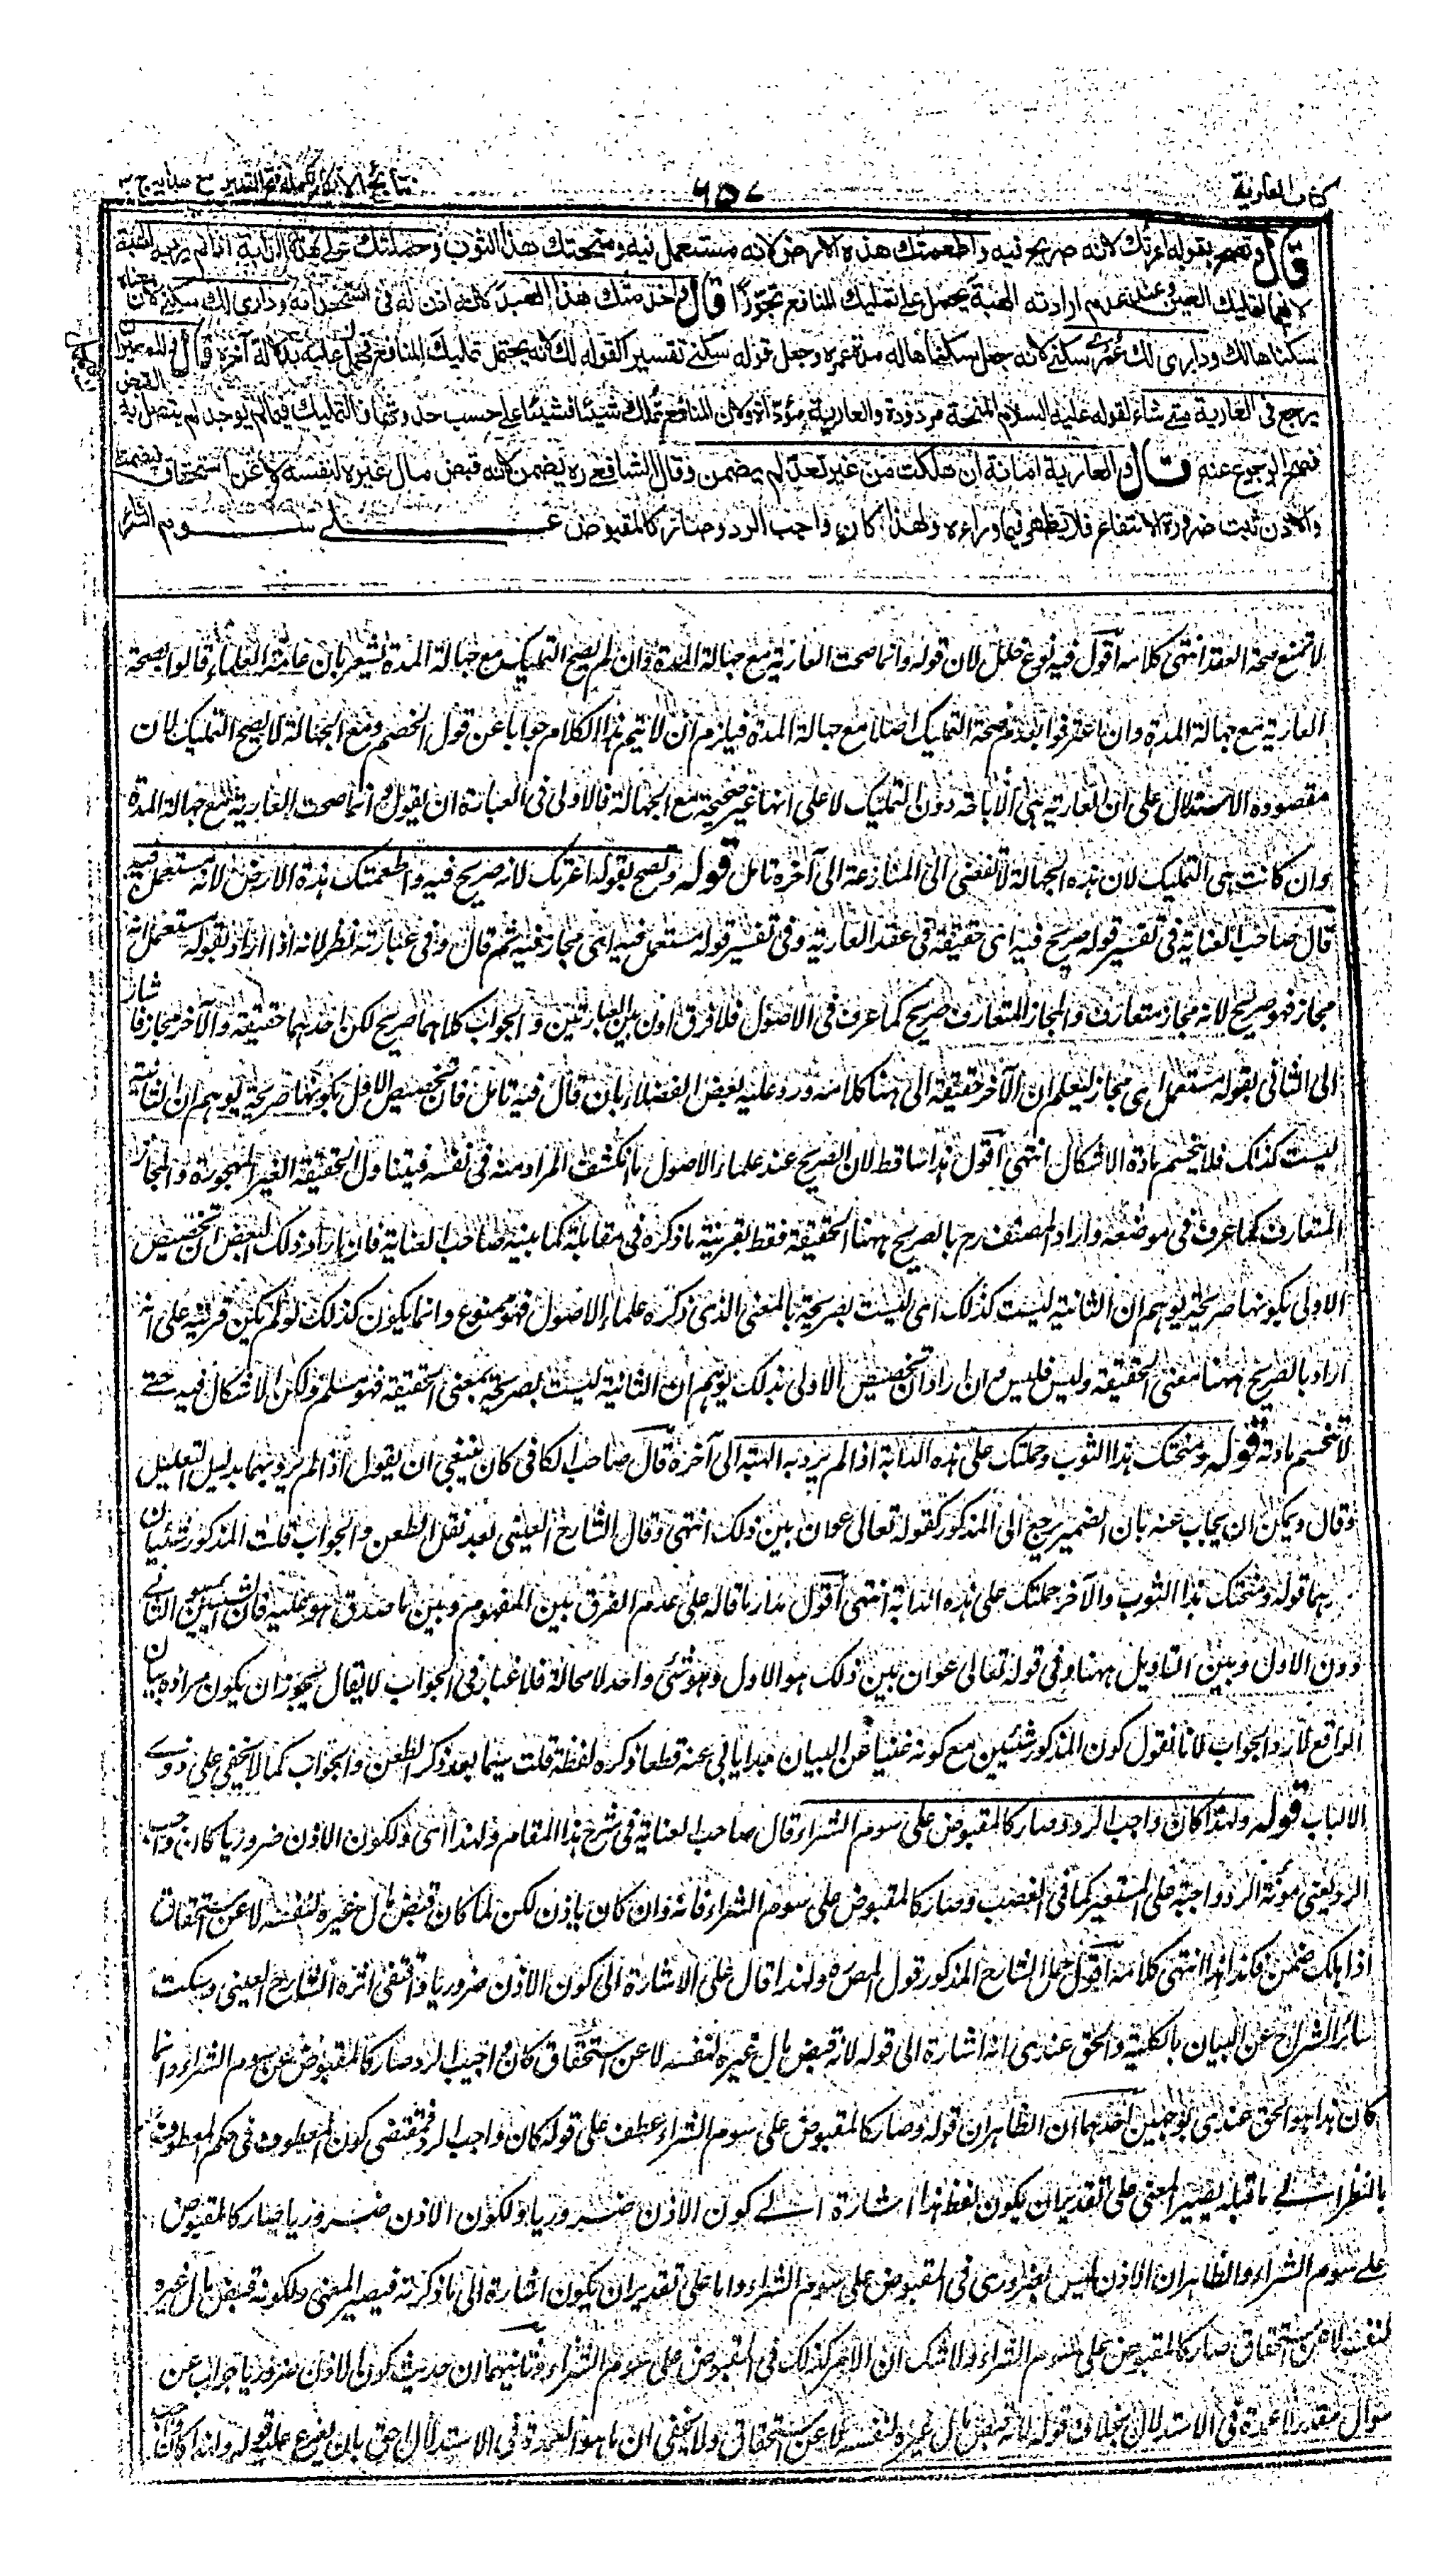 كتاب العارية
٦٥٧
نتائج الافكار تكملة فتح القدير مع هداية ج ٣
قال وتصح بقوله اعرتك لانه صريح فيه واطعمتك هذه الارض لانه مستعمل فيه ومنحتك هذا الثوب وحملتك على هذه الدابة اذا لم يرد به الهبة
لانهما لتمليك العين وعند عدم ارادته الهبة يحمل على تمليك المنافع تجوزا قال واخدمتك هذا العبد لانه اذن له فى استخدامه ودارى لك سكنى لان معناه
سكناها لك ودارى لك عمرى سكنى لانه جعل سكناها له مدة عمره وجعل قوله سكنى تفسيرا لقوله لك لانه يحتمل تمليك المنافع فحمل عليه بدلالة آخره قال وللمعير ان
يرجع فى العارية متى شاء لقوله عليه السلام المنحة مردودة والعارية مؤداة ولان المنافع تملك شيئا فشيئا على حسب حدوثها فالتمليك فيما لم يوجد لم يتصل به القبض
فصح الرجوع عنه قال والعارية امانة ان هلكت من غير تعد لم يضمن وقال الشافعى ره يضمن لانه قبض مال غيره لنفسه لا عن استحقاق فيضمنه
والاذن ثبت ضرورة الانتفاع فلا يظهر فيما وراءه ولهذا كان واجب الرد وصار كالمقبوض على سوم الشراء
لا تمنع صحة العقد انتهى كلامه اقول فيه نوع خلل لان قوله وانما صحت العارية مع جهالة المدة وان لم يصح التمليك مع جهالة المدة يشعر بان عامة العلماء قالوا بصحة
العارية مع جهالة المدة وان اعترفوا بعدم صحة التمليك اصلا مع جهالة المدة فيلزم ان لا يتم هذا الكلام جوابا عن قول الخصم ومع الجهالة لا يصح التمليك لان
مقصوده الاستدلال على ان العارية هى الاباحة دون التمليك لا على انها غير صحيحة مع الجهالة فالاولى فى العبارة ان يقول وانما صحت العارية مع جهالة المدة
وان كانت هى التمليك لان هذه الجهالة لا تفضى الى المنازعة الى آخره تامل قوله وتصح بقوله اعرتك لانه صريح فيه واطعمتك هذه الارض لانه مستعمل فيه
قال صاحب العناية فى تفسير قوله صريح فيه اى حقيقة فى عقد العارية وفى تفسير قوله مستعمل فيه اى مجاز فيه ثم قال وفى عبارته نظر لانه اذا اراد بقوله مستعمل انه
مجاز فهو صريح لانه مجاز متعارف والمجاز المتعارف صريح كما عرف فى الاصول فلا فرق اذن بين العبارتين والجواب كلاهما صريح لكن احدهما حقيقة والآخر مجاز فاشار
الى الثانى بقوله مستعمل اى مجاز ليعلم ان الآخر حقيقة الى هنا كلامه ورد عليه بعض الفضلاء بان قال فيه تامل فان تخصيص الاول بكونها صريحة يوهم ان الثانية
ليست كذلك فلا ينحسم مادة الاشكال انتهى اقول هذا ساقط لان الصريح عند علماء الاصول ما انكشف المراد منه فى نفسه فيتناول الحقيقة الغير المهجورة والمجاز
المتعارف كما عرف فى موضعه واراد المصنف رح بالصريح ههنا الحقيقة فقط بقرينة ما ذكره فى مقابلته كما بينه صاحب العناية فان اراد ذلك البعض ان تخصيص
الاولى بكونها صريحة يوهم ان الثانية ليست كذلك اى ليست بصريحة بالمعنى الذى ذكره علماء الاصول فهو ممنوع وانما يكون كذلك لو لم يكن قرينة على انه
اراد بالصريح ههنا معنى الحقيقة وليس فليس وان اراد ان تخصيص الاولى بذلك يوهم ان الثانية ليست بصريحة بمعنى الحقيقة فهو مسلم ولكن لا اشكال فيه حتى
لا تنحسم مادته قوله ومنحتك هذا الثوب وحملتك على هذه الدابة اذا لم يرد به الهبة الى آخره قال صاحب الكافى كان ينبغى ان يقول اذا لم يرد بهما بدليل التعليل
وقال ويمكن ان يجاب عنه بان الضمير يرجع الى المذكور كقوله تعالى عوان بين ذلك انتهى وقال الشارح العينى بعد نقل الطعن والجواب قلت المذكور شيئان
احدهما قوله ومنحتك هذا الثوب والآخر حملتك على هذه الدابة انتهى اقول مدار ما قاله على عدم الفرق بين المفهوم وبين ما صدق هو عليه فان الشيئين الثانى
دون الاول وبين التاويل ههنا وفى قوله تعالى عوان بين ذلك هو الاول وهو شئ واحد لا محالة فلا غبار فى الجواب لا يقال يجوز ان يكون مراده بيان
الواقع لا رد الجواب لانا نقول كون المذكور شيئين مع كونه غنيا عن البيان جدا يابى عنه قطعا ذكره لفظة قلت سيما بعد ذكر الطعن والجواب كما لا يخفى على ذوى
الالباب قوله ولهذا كان واجب الرد وصار كالمقبوض على سوم الشراء قال صاحب العناية فى شرح هذا المقام ولهذا اى ولكون الاذن ضروريا كان واجب
الرد يعنى مؤنة الرد واجبة على المستعير كما فى الغصب وصار كالمقبوض على سوم الشراء فانه وان كان باذن لكن لما كان قبض مال غيره لنفسه لا عن استحقاق
اذا هلك ضمن فكذا هذا انتهى كلامه اقول حمل الشارح المذكور قول المصره ولهذا قال على الاشارة الى كون الاذن ضروريا واقتفى اثره الشارح العينى وسكت
سائر الشراح عن البيان بالكلية والحق عندى انه اشارة الى قوله لانه قبض مال غيره لنفسه لا عن استحقاق كان واجب الرد وصار كالمقبوض على سوم الشراء وانما
كان هذا هو الحق عندى بوجهين احدهما ان الظاهر ان قوله وصار كالمقبوض على سوم الشراء عطف على قوله كان واجب الرد فيقتضى كون المعطوف فى حكم المعطوف عليه
بالنظر الى ما قبله يصير المعنى على تقدير ان يكون لفظ هذا اشارة الى كون الاذن ضروريا ولكون الاذن ضروريا صار كالمقبوض
على سوم الشراء والظاهر ان الاذن ليس بضرورى فى المقبوض على سوم الشراء واما على تقدير ان يكون اشارة الى ما ذكرته فيصير المعنى ولكونه قبض مال غيره
لنفسه لا عن استحقاق صار كالمقبوض على سوم الشراء ولا شك ان الامر كذلك فى المقبوض على سوم الشراء وثانيهما ان حديث كون الاذن ضروريا جواب عن
سؤال مقدر لا عمدة فى الاستدلال بخلاف قوله لانه قبض مال غيره لنفسه لا عن استحقاق ولا يخفى ان ما هو العمدة فى الاستدلال احق بان يفرع عليه قوله ولهذا كان واجب